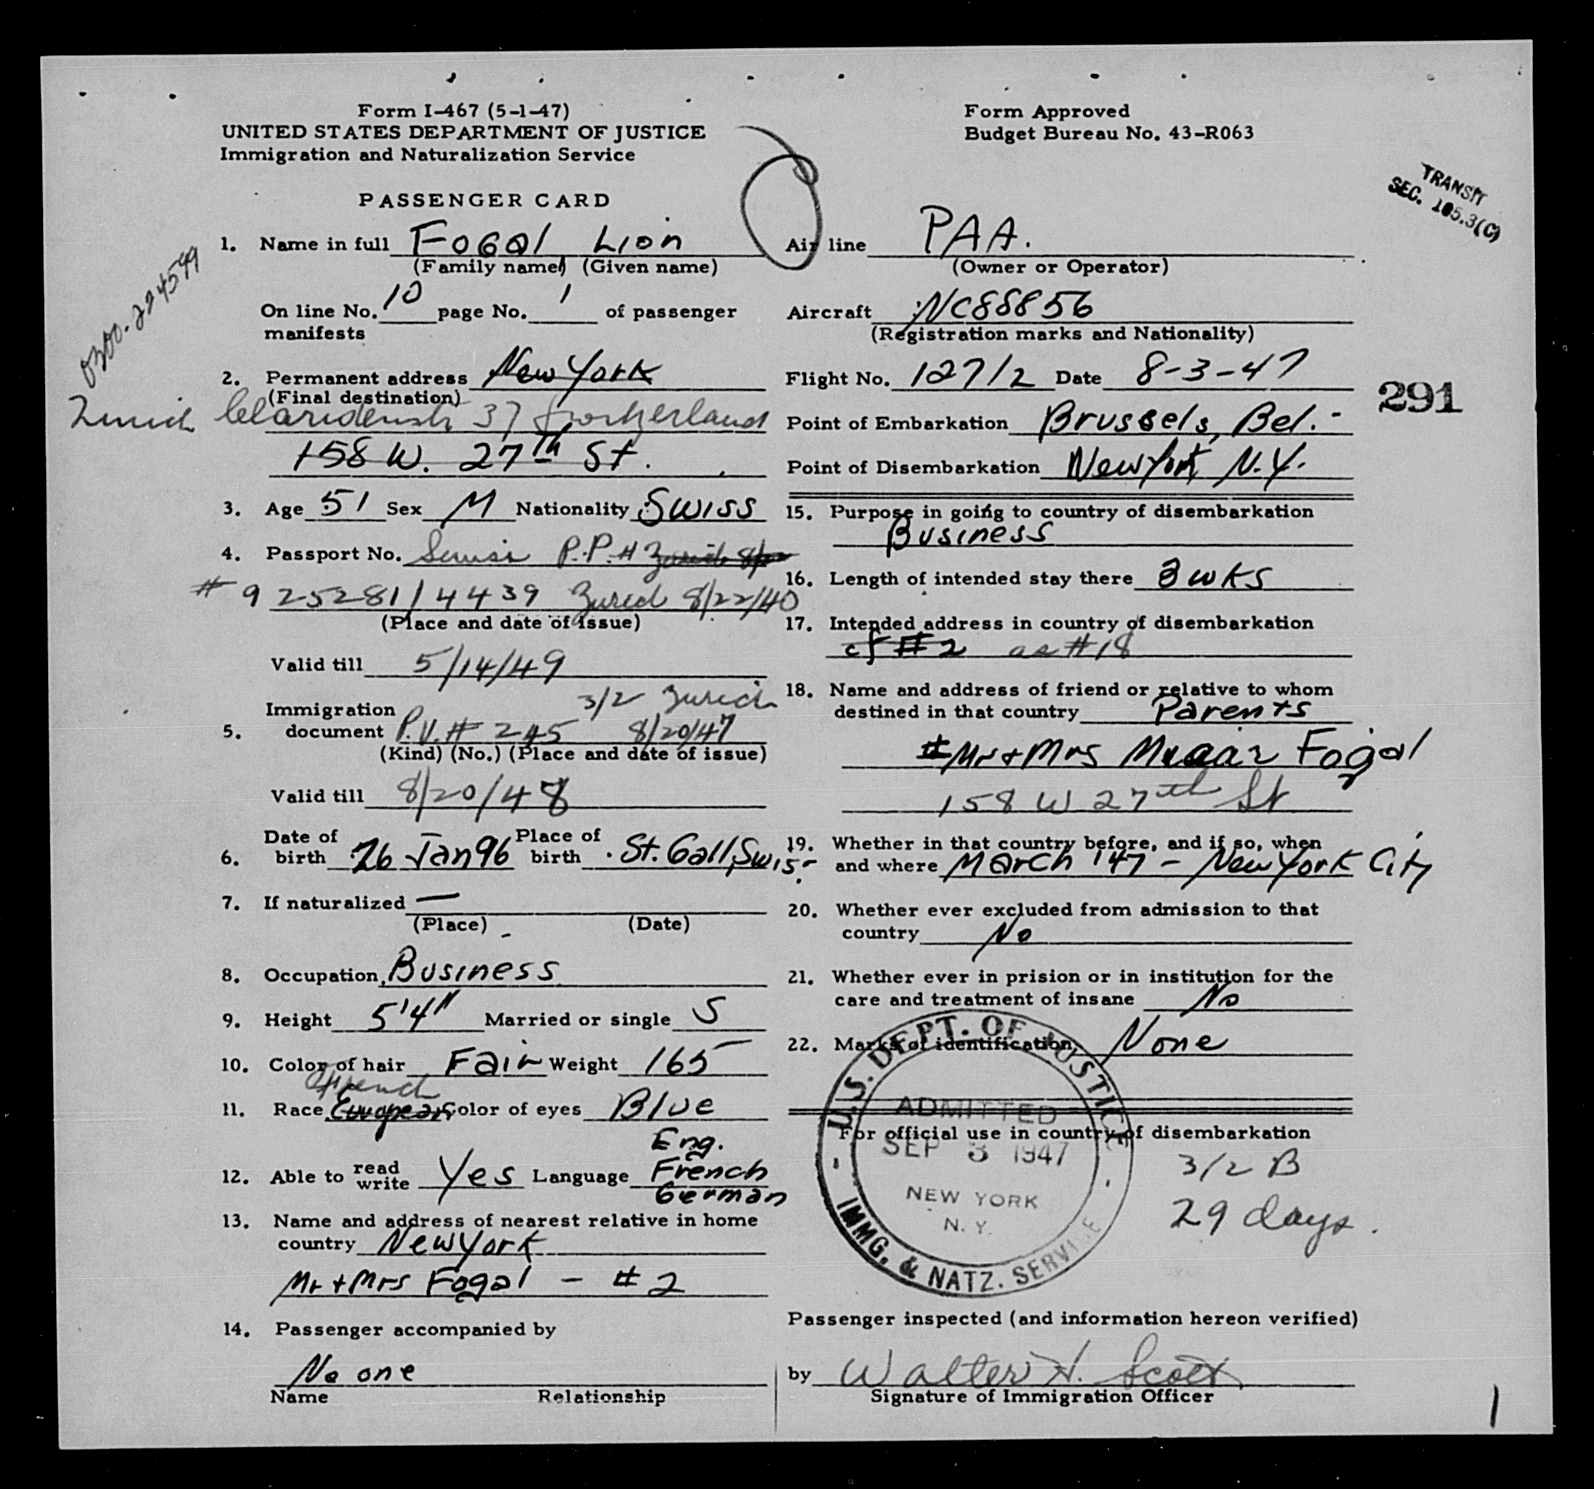 Form I-467 (5-1-47)
UNITED STATES DEPARTMENT OF JUSTICE
Immigration and Naturalization Service
PASSENGER CARD
Form Approved
Budget Bureau No. 43-R063
TRANSIT
SEC. 105.3(C)
0300-224599
291
1. Name in full Fogal Lion
(Family name) (Given name)
On line No. 10 page No. 1 of passenger
manifests
2. Permanent address New York
(Final destination)
Zurich Claridenstr 37
158 W. 27th St.
3. Age 51 Sex M Nationality Swiss
4. Passport No. Swiss P.P.# Zurich
# 925281/4439 Zurich 8/22/40
(Place and date of issue)
Valid till 5/14/49
3/2 Zurich
5. Immigration
document P.V.# 245 8/20/47
(Kind) (No.) (Place and date of issue)
Valid till 8/20/48
6. Date of birth 26 Jan 96 Place of birth St. Gall, Swis.
7. If naturalized —
(Place) (Date)
8. Occupation Business
9. Height 5'4" Married or single S
10. Color of hair Fair Weight 165
French
11. Race European Color of eyes Blue
Eng.
12. Able to read write Yes Language French
German
13. Name and address of nearest relative in home
country New York
Mr + Mrs Fogal - #2
14. Passenger accompanied by
No one
Name Relationship
Air line PAA.
(Owner or Operator)
Aircraft NC88856
(Registration marks and Nationality)
Flight No. 127/2 Date 8-3-47
Point of Embarkation Brussels, Bel.-
Point of Disembarkation New York, N.Y.
15. Purpose in going to country of disembarkation
Business
16. Length of intended stay there 3 wks
17. Intended address in country of disembarkation
cf #2 as #18
18. Name and address of friend or relative to whom
destined in that country Parents
Mr + Mrs Fogal
158 W 27th St
19. Whether in that country before, and if so, when
and where March '47 - New York City
20. Whether ever excluded from admission to that
country No
21. Whether ever in prision or in institution for the
care and treatment of insane No
22. Marks of identification None
For official use in country of disembarkation
U.S. DEPT. OF JUSTICE
ADMITTED
SEP 3 1947
NEW YORK
N.Y.
IMMG. & NATZ. SERVICE
3/2 B
29 days.
Passenger inspected (and information hereon verified)
by Walter H. Scott
Signature of Immigration Officer
1